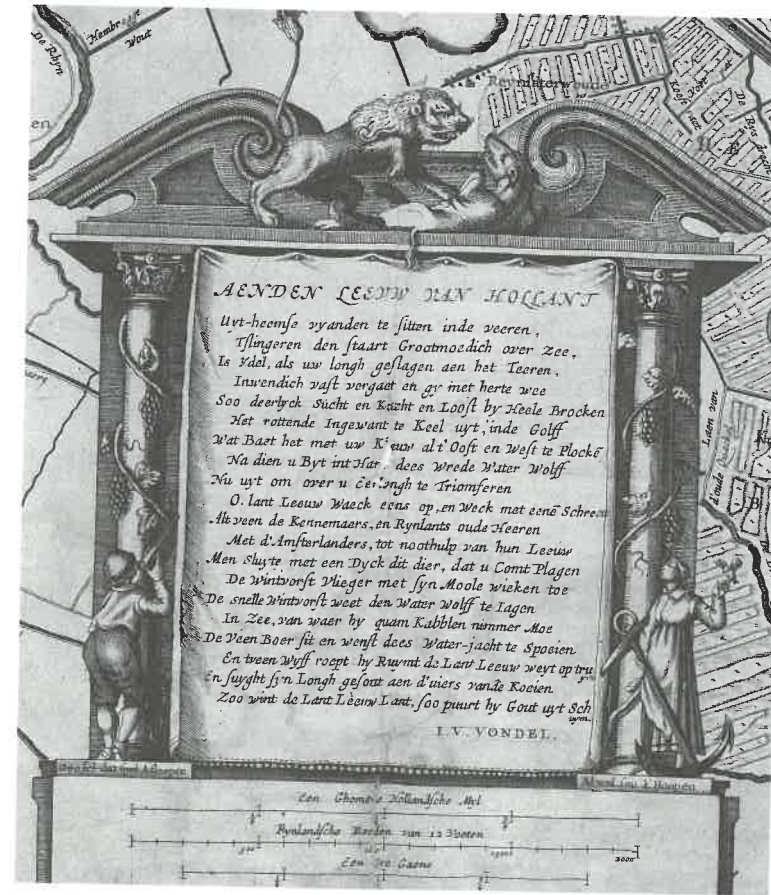 De Rhyn
Hembrugge
Wout
en
Koeft
Voort
aat
De Rys drecht
AENDEN LEEUW VAN HOLLANT
Uyt-heemse vyanden te sitten inde veeren,
Tslingeren den staart Grootmoedich over Zee,
Is Ydel, als uw longh geslagen aen het Teeren,
Inwendich vast vergaet en gy met herte wee
Soo deerlyck Sucht en Kucht en Loost by Heele Brocken
Het rottende Ingewant te Keel uyt, inde Golff
Wat Baet het met uw Kleuw alt' Oost en West te Plockē
Na dien u Byt int Har dees Wrede Water Wolff
Nu uyt om over u te Triomferen
O. lant Leeuw Waeck eens op, en Weck met eenē Schreeu
Alt veen de Kennemaers, en Rynlants oude Heeren
Met d'Amsterlanders, tot noothulp van hun Leeuw
Men sluyte met een Dyck dit dier, dat u Comt Plagen
De Wintvorst vlieger met syn Moole wieken toe
De snelle Wintvorst weet den Water Wolff te Iagen
In Zee, van waer hy quam Kabblen nimmer Moe
De Veen Boer sit en wenst dees Water-jacht te Spoeien
En tveen Wyff roept hy Ruymt de Lant Leeuw weyt op tru
En suyght syn Longh gesont aen d'uiers vande Koeien
Zoo wint de Lant Leeuw Lant, soo puurt hy Gout uyt Sch
uym.
I.V. VONDEL.
Laten van
d'oude
B
Een Ghemeene Hollandsche Myl
Rynlandsche Roeden van 12 Voeten
2000
Een Ure Gaens